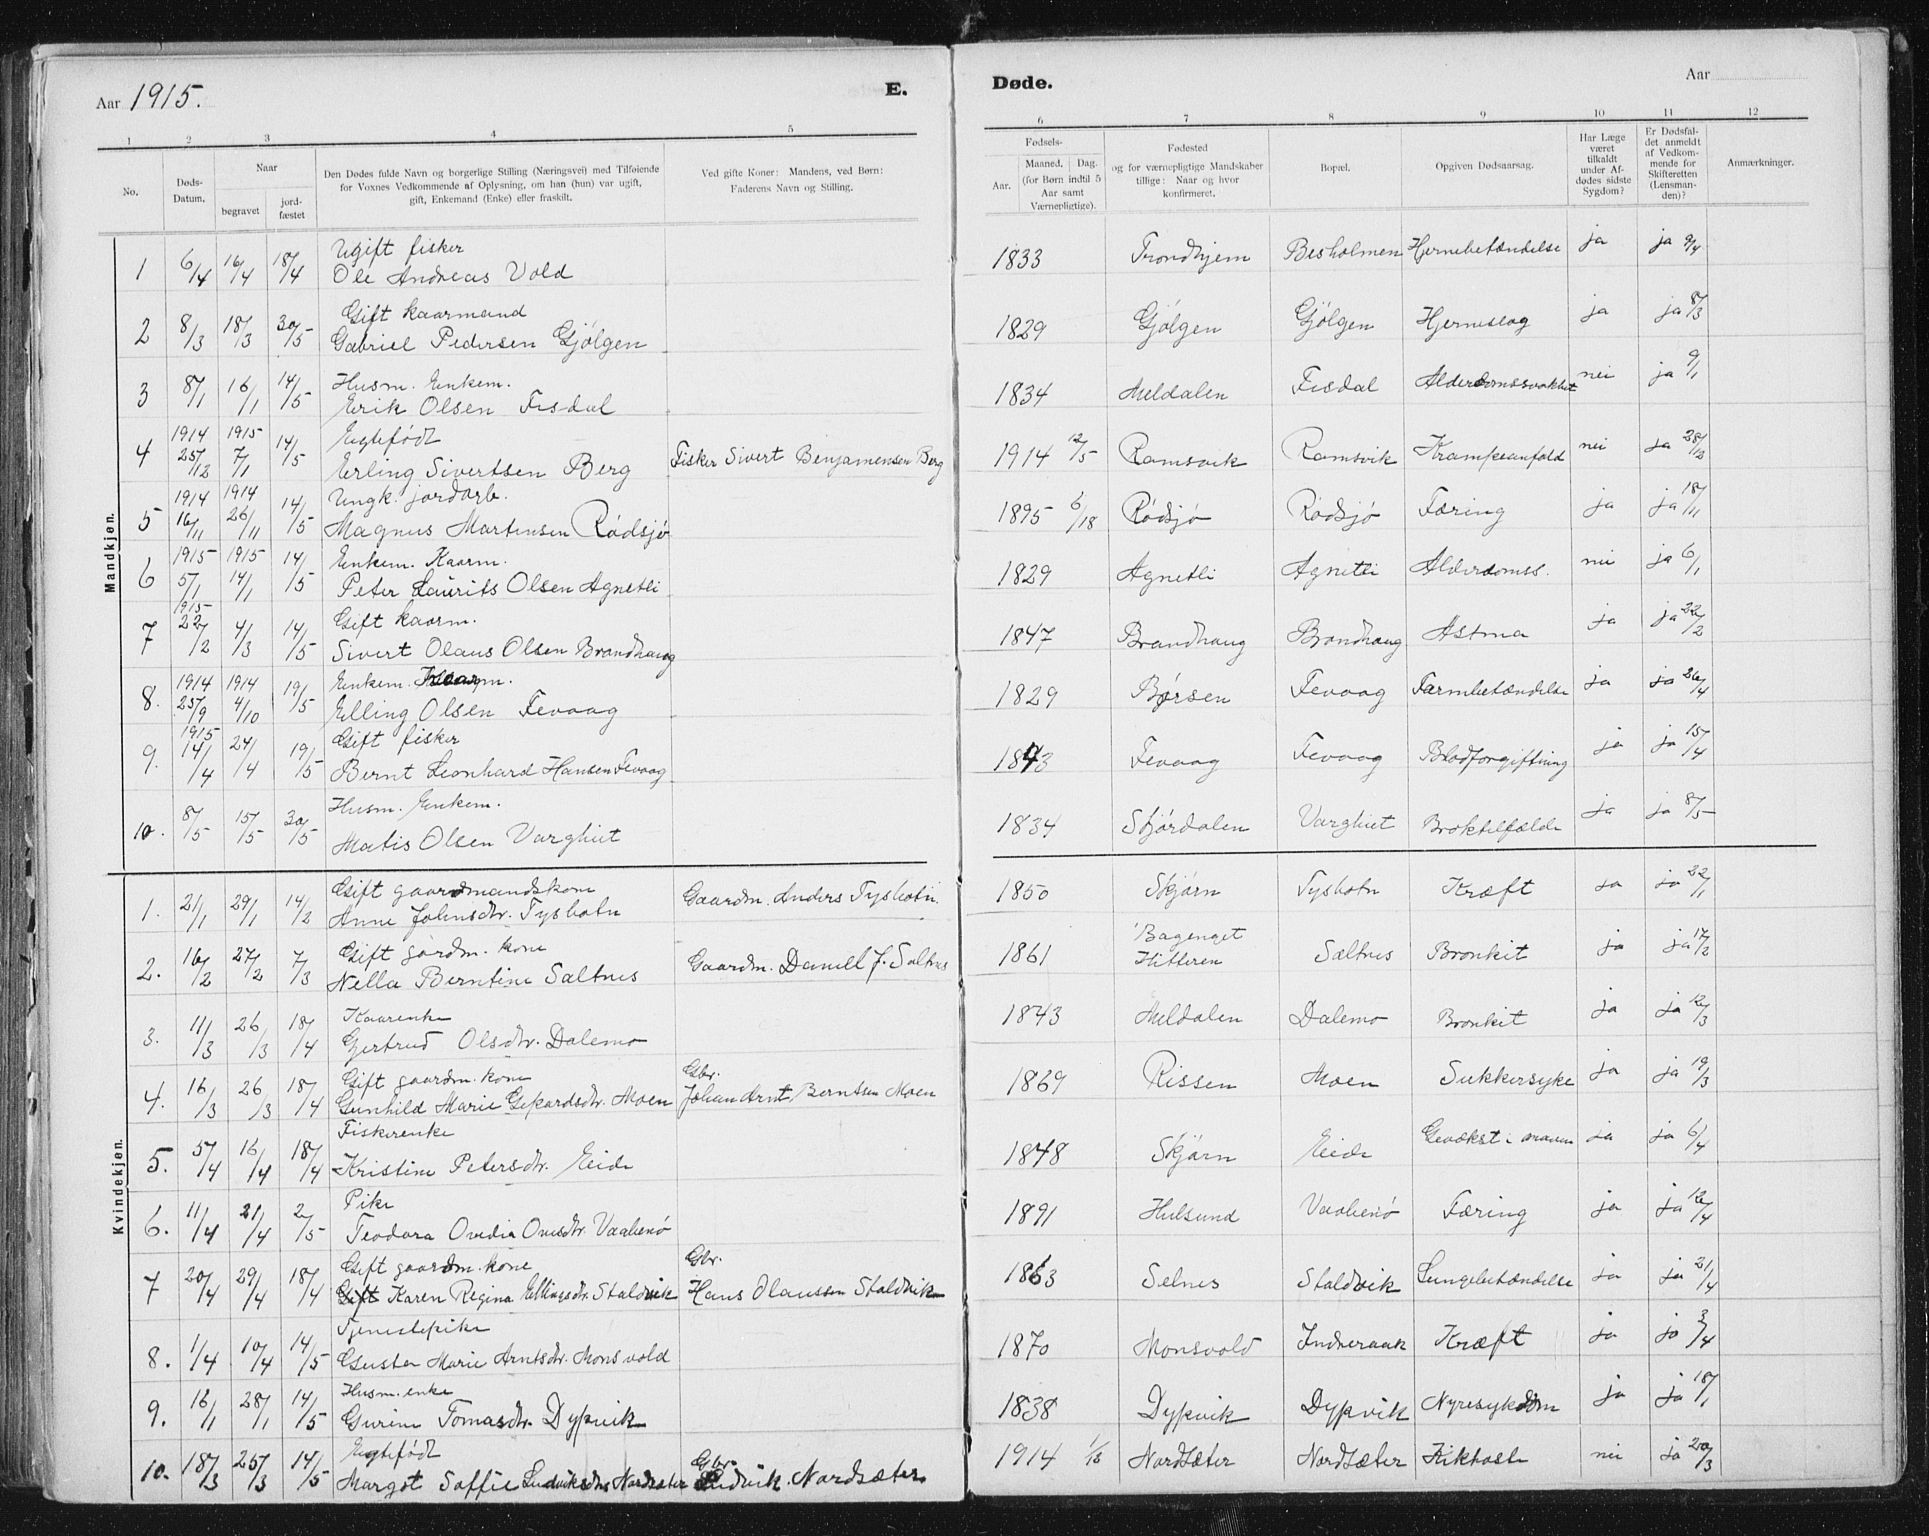 Aar 1915.
E.
Døde.
Aar
1 2 3 4 5 6 7 8 9 10 11 12
No.
Døds-Datum.
Naar
begravet
jord-fæstet
Den Dødes fulde Navn og borgerlige Stilling (Næringsvei) med Tilføiende
for Voxnes Vedkommende af Oplysning, om han (hun) var ugift,
gift, Enkemand (Enke) eller fraskilt.
Ved gifte Koner: Mandens, ved Børn:
Faderens Navn og Stilling.
Fødsels-
Aar.
Maaned, Dag.
(for Børn indtil 5
Aar samt
Værnepligtige).
Fødested
og for værnepligtige Mandskaber
tillige: Naar og hvor
konfirmeret.
Bopæl.
Opgiven Dødsaarsag.
Har Læge
været
tilkaldt
under Af-
dødes sidste
Sygdom?
Er Dødsfal-
det anmeldt
af Vedkom-
mende for
Skifteretten
(Lensman-
den)?
Anmærkninger.
Mandkjøn.
1 6/4 16/4 18/4 Ugift fisker
Ole Andreas Vold 1833 Trondhjem Besholmen Hjernebetændelse ja ja 9/4
2 8/3 18/3 30/5 Gift kaarmand
Gabriel Pedersen Gjølgen 1829 Gjølgen Gjølgen Hjerneslag ja ja 8/3
3 8/1 16/1 14/5 Husm. Enkem.
Erik Olsen Fisdal 1834 Meldalen Fisdal Alderdomssvakhet nei ja 9/1
4 1914 25/12 1915 7/1 14/5 Egtefødt
Erling Sivertsen Berg Fisker Sivert Benjamensen Berg 1914 12/5 Ramsvik Ramsvik Krampeanfald nei ja 28/12
5 1914 16/11 1914 26/11 14/5 Ungk. jordarb.
Magnus Martinsen Rødsjø 1895 6/18 Rødsjø Rødsjø Tæring ja ja 18/11
6 1915 5/1 1915 14/1 14/5 Enkem. Kaarm.
Peter Laurits Olsen Agnetli 1829 Agnetli Agnetli Alderdomss. nei ja 6/1
7 1915 22/2 4/3 14/5 Gift kaarm.
Sivert Olaus Olsen Brandhaug 1847 Brandhaug Brandhaug Astma ja ja 22/2
8. 1914 25/9 1914 4/10 19/5 Enkem. Kaarm.
Elling Olsen Fevaag 1829 Børsen Fevaag Tarmbetændelse ja ja 26/4
9. 1915 14/4 24/4 19/5 Gift fisker
Bernt Leonhard Hansen Fevaag 1843 Fevaag Fevaag Blodforgiftning ja ja 15/4
10. 8/5 15/5 30/5 Husm. Enkem.
Matis Olsen Varghiet 1834 Skjørdalen Varghiet Broktilfælde ja ja 8/5
Kvindekjøn.
1. 21/1 29/1 14/2 Gift gaardmandskone
Anne Johnsdtr. Tysbotn Gaardm. Anders Tysbotn. 1850 Skjørn Tysbotn Kræft ja ja 22/1
2. 16/2 27/2 7/3 Gift gardm. kone
Nella Berntine Saltnes Gaardm. Daniel J. Saltnes 1861 Bagenget
Hitteren Saltnes Bronkit ja ja 17/2
3. 11/3 26/3 18/4 Kaarenke
Gjertrud Olsdtr. Dalemo 1843 Meldalen Dalemo Bronkit ja ja 12/3
4. 16/3 26/3 18/4 Gift gaardm. kone
Gunhild Marie Gerhardsdtr. Moen Gbr.
Johan Arnt Berntsen Moen 1869 Rissen Moen Sukkersyke ja ja 19/3
5. 5/4 16/4 18/4 Fiskerenke
Kristine Petersdtr. Eide 1848 Skjørn Eide Gevækst i maven ja ja 6/4
6. 11/4 21/4 2/5 Pike
Teodora Ovedia Ovesdtr. Vaabenø 1891 Hulsund Vaabenø Tæring ja ja 12/4
7 20/4 29/4 18/4 Gift gaardm. kone
Gift Karen Regina Ellingsdtr. Staldvik Gbr.
Hans Olaussen Staldvik 1863 Selnes Staldvik Lungebetændelse ja ja 21/4
8. 1/4 10/4 14/5 Tjenestepike
Gusta Marie Arntsdtr. Monsvold 1870 Monsvold Indreraak Kræft ja ja 3/4
9. 16/1 28/1 14/5 Husm. enke
Gurine Tomasdtr. Dypvik 1838 Dypvik Dypvik Nyresykdom ja ja 18/1
10. 18/3 25/3 14/5 Egtefødt
Margot Soffie Ludviksdtr Nordsæter Gbr.
Ludvik Nordsæter 1914 1/3 Nordsæter Nordsæter Kikhoste nei ja 20/3